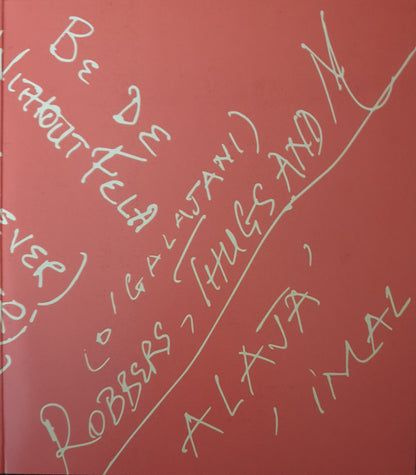 BE DM
WITHOUT FELA
EVER)
(O'GALAJANI)
ROBBERS, THUGS AND M
ALAJA,
, IMAL